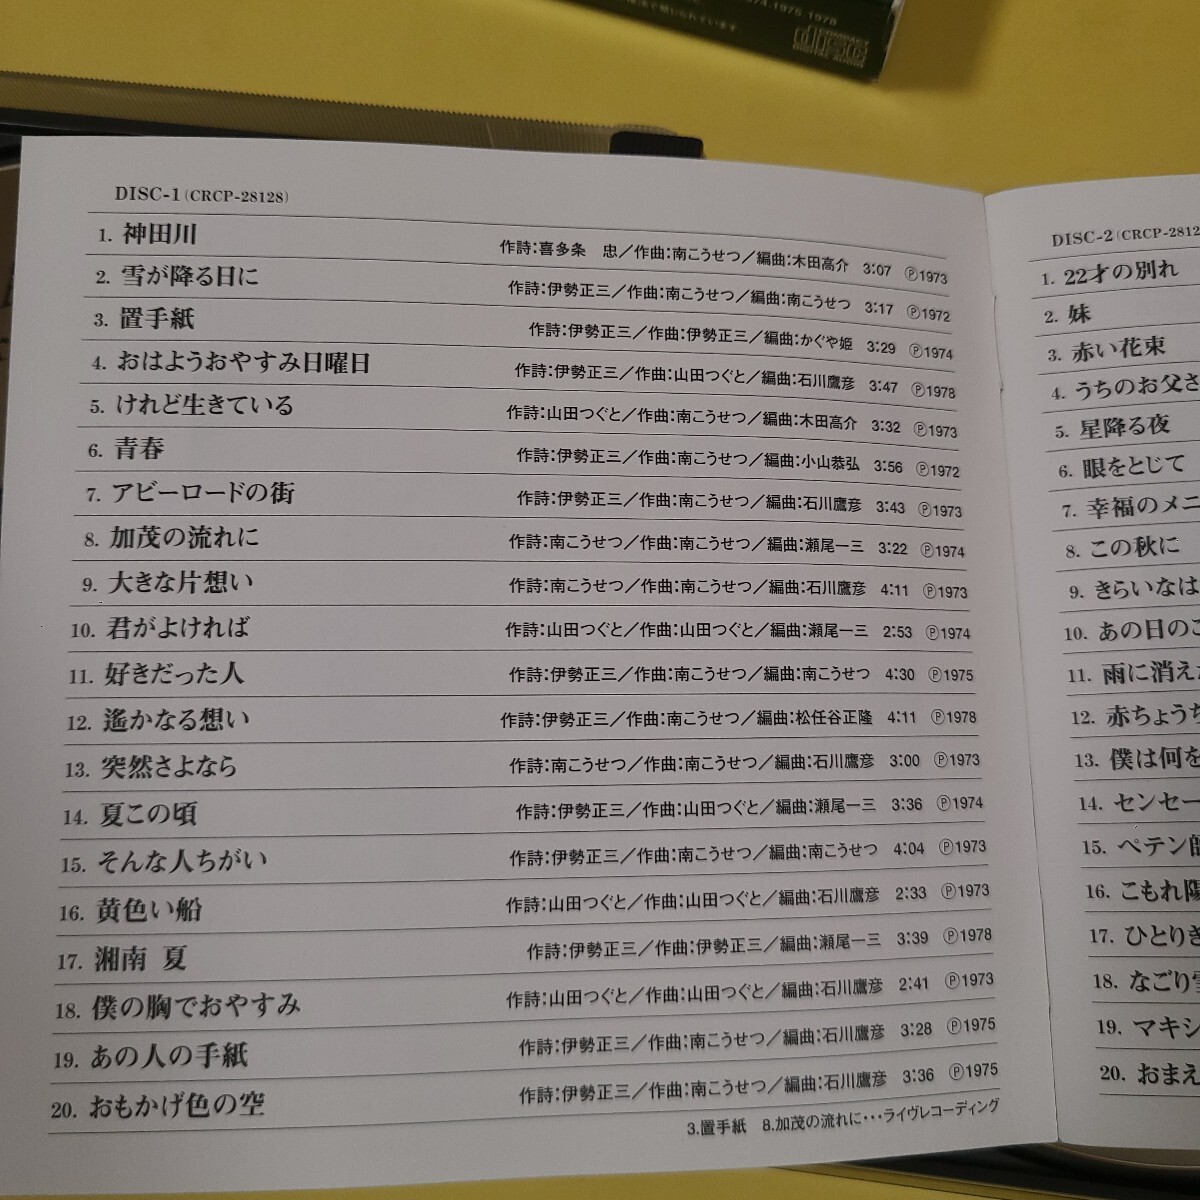 74.1975.1978
で禁じられています。
COMPACT
disc
DIGITAL AUDIO
DISC-1(CRCP-28128)
1. 神田川 作詩:喜多条 忠/作曲:南こうせつ/編曲:木田高介 3:07 Ⓟ1973
2. 雪が降る日に 作詩:伊勢正三/作曲:南こうせつ/編曲:南こうせつ 3:17 Ⓟ1972
3. 置手紙 作詩:伊勢正三/作曲:伊勢正三/編曲:かぐや姫 3:29 Ⓟ1974
4. おはようおやすみ日曜日 作詩:伊勢正三/作曲:山田つぐと/編曲:石川鷹彦 3:47 Ⓟ1978
5. けれど生きている 作詩:山田つぐと/作曲:南こうせつ/編曲:木田高介 3:32 Ⓟ1973
6. 青春 作詩:伊勢正三/作曲:南こうせつ/編曲:小山恭弘 3:56 Ⓟ1972
7. アビーロードの街 作詩:伊勢正三/作曲:南こうせつ/編曲:石川鷹彦 3:43 Ⓟ1973
8. 加茂の流れに 作詩:南こうせつ/作曲:南こうせつ/編曲:瀬尾一三 3:22 Ⓟ1974
9. 大きな片想い 作詩:南こうせつ/作曲:南こうせつ/編曲:石川鷹彦 4:11 Ⓟ1973
10. 君がよければ 作詩:山田つぐと/作曲:山田つぐと/編曲:瀬尾一三 2:53 Ⓟ1974
11. 好きだった人 作詩:伊勢正三/作曲:南こうせつ/編曲:南こうせつ 4:30 Ⓟ1975
12. 遙かなる想い 作詩:伊勢正三/作曲:南こうせつ/編曲:松任谷正隆 4:11 Ⓟ1978
13. 突然さよなら 作詩:南こうせつ/作曲:南こうせつ/編曲:石川鷹彦 3:00 Ⓟ1973
14. 夏この頃 作詩:伊勢正三/作曲:山田つぐと/編曲:瀬尾一三 3:36 Ⓟ1974
15. そんな人ちがい 作詩:伊勢正三/作曲:南こうせつ/編曲:南こうせつ 4:04 Ⓟ1973
16. 黄色い船 作詩:山田つぐと/作曲:山田つぐと/編曲:石川鷹彦 2:33 Ⓟ1973
17. 湘南 夏 作詩:伊勢正三/作曲:伊勢正三/編曲:瀬尾一三 3:39 Ⓟ1978
18. 僕の胸でおやすみ 作詩:山田つぐと/作曲:山田つぐと/編曲:石川鷹彦 2:41 Ⓟ1973
19. あの人の手紙 作詩:伊勢正三/作曲:南こうせつ/編曲:石川鷹彦 3:28 Ⓟ1975
20. おもかげ色の空 作詩:伊勢正三/作曲:南こうせつ/編曲:石川鷹彦 3:36 Ⓟ1975
3.置手紙 8.加茂の流れに・・・ライヴレコーディング
DISC-2(CRCP-2812
1. 22才の別れ
2. 妹
3. 赤い花束
4. うちのお父さ
5. 星降る夜
6. 眼をとじて
7. 幸福のメニ
8. この秋に
9. きらいなは
10. あの日のこ
11. 雨に消えた
12. 赤ちょうち
13. 僕は何を
14. センセー
15. ペテン師
16. こもれ陽
17. ひとりき
18. なごり雪
19. マキシ
20. おまえ